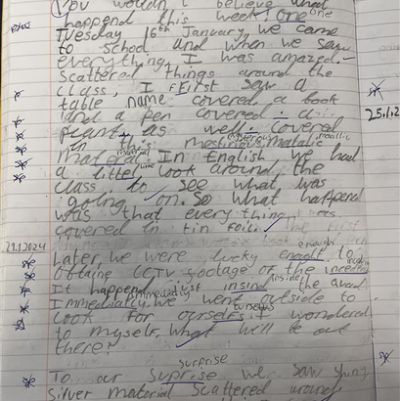 You wouldn't believe what
happend this week! One one
Tuesday 16th January, we came
to school and when we saw
everything, I was amazed.
Scattered things around the
class, I First saw a
table name covered, a book
and a pen covered a 25.1.2
plant as well covered
in this metallic
material. In English we had
a littel look around the
class to see what was
going on. So what happend
was that everything
covered in tin foil. first
22.1.2024 enough
Later, we were lucky to
obtaine CCTV footage of the
It happend inside the
Immediatly we went outside to
look for ourselfs. I wondered
to myself, What will be out
there?
surprise
To our suprise we saw shiny
Silver material Scattered around